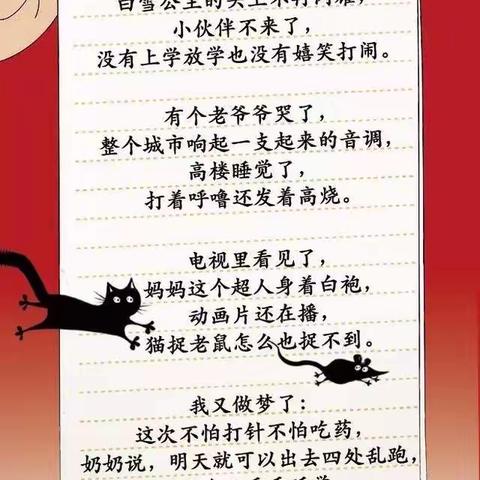 小伙伴不来了，
没有上学放学也没有嬉笑打闹。
有个老爷爷哭了，
整个城市响起一支起来的音调，
高楼睡觉了，
打着呼噜还发着高烧。
电视里看见了，
妈妈这个超人身着白袍，
动画片还在播，
猫捉老鼠怎么也捉不到。
我又做梦了：
这次不怕打针不怕吃药，
奶奶说，明天就可以出去四处乱跑，